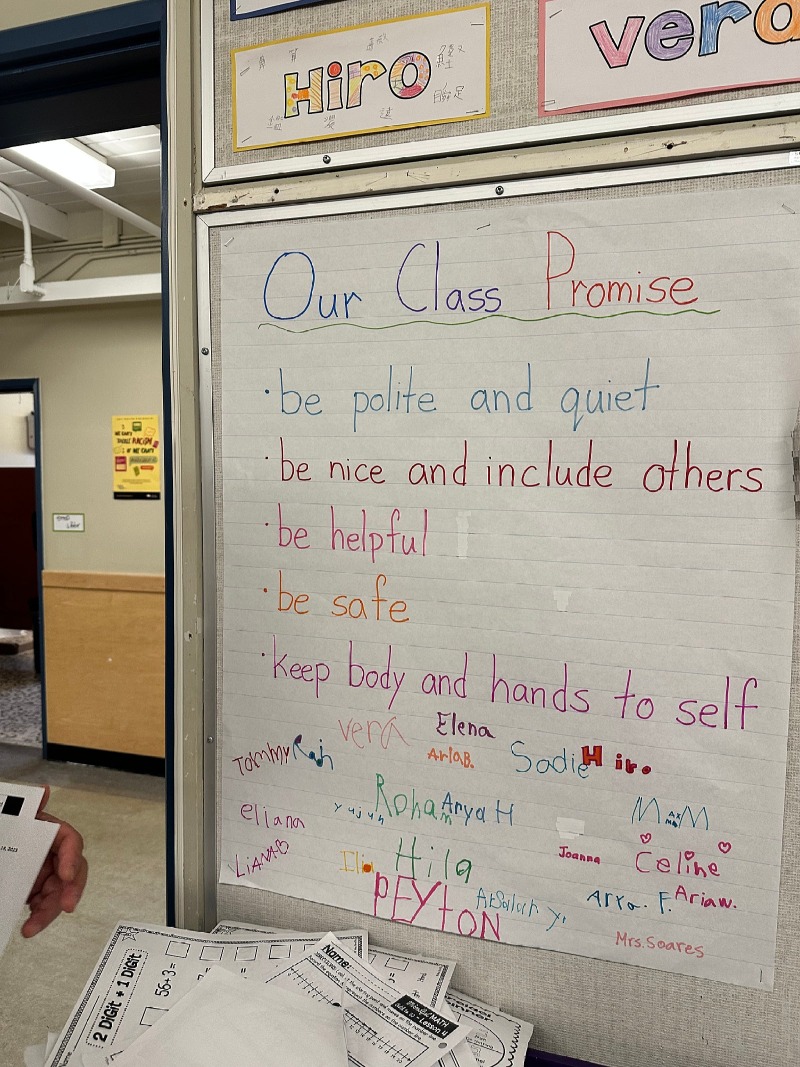 Hiro
vera
Our Class Promise
·be polite and quiet
·be nice and include others
·be helpful
·be safe
·keep body and hands to self
vera Elena
Tommy Arla B. Sadie Hiro
Rohan Anya H
eliana
Joanna Celine
LiANA Hila
PEYTON Arya. F. Aria w.
Mrs. Soares
2 DiGiT + 1 DiGiT
56-3=
Name:
MATH
Lesson 4